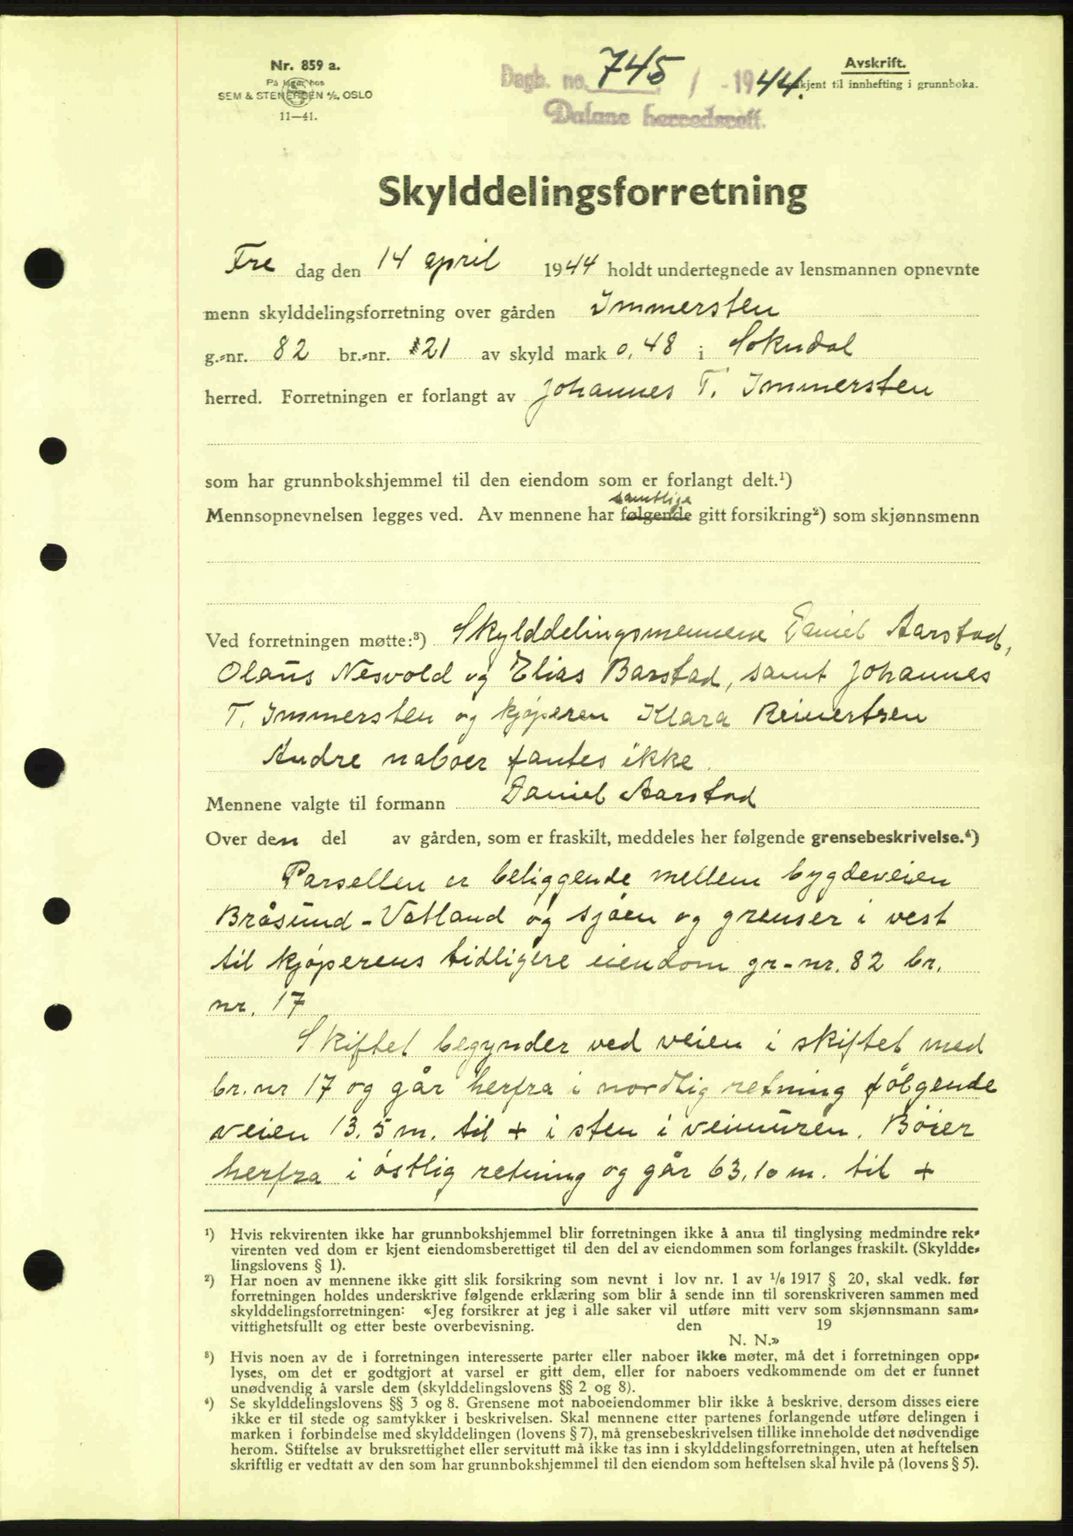 Nr. 859 a.
På lager hos
SEM & STENERSEN A/S, OSLO
11—41.
Dagb. no. 745 / - 1944.
Dalane herredsrett.
Avskrift.
kjent til innhefting i grunnboka.
Skylddelingsforretning
Fre dag den 14 april 1944 holdt undertegnede av lensmannen opnevnte
menn skylddelingsforretning over gården Immersten
g.-nr. 82 br.-nr. 21 av skyld mark 0,48 i Sokndal
herred. Forretningen er forlangt av Johannes T. Immersten
som har grunnbokshjemmel til den eiendom som er forlangt delt.¹)
samtlige
Mennsopnevnelsen legges ved. Av mennene har følgende gitt forsikring²) som skjønnsmenn
Ved forretningen møtte:³) Skylddelingsmennene Daniel Aarstad,
Olaus Nesvold og Elias Barstad, samt Johannes
T. Immersten og kjøperen Klara Reinertsen
Andre naboer fantes ikke.
Mennene valgte til formann Daniel Aarstad
Over den del av gården, som er fraskilt, meddeles her følgende grensebeskrivelse.⁴)
Parsellen er beliggende mellem bygdeveien
Bråsund - Vatland og sjøen og grenser i vest
til kjøperens tidligere eiendom gr-nr. 82 br.
nr. 17
Skiftet begynder ved veien i skiftet med
br.nr 17 og går herfra i nordlig retning følgende
veien 13.5 m. til + i sten i veimuren. Bøier
herfra i østlig retning og går 63,10 m. til +
¹) Hvis rekvirenten ikke har grunnbokshjemmel blir forretningen ikke å anta til tinglysing medmindre rek-
virenten ved dom er kjent eiendomsberettiget til den del av eiendommen som forlanges fraskilt. (Skyldde-
lingslovens § 1).
²) Har noen av mennene ikke gitt slik forsikring som nevnt i lov nr. 1 av ¹/₆ 1917 § 20, skal vedk. før
forretningen holdes underskrive følgende erklæring som blir å sende inn til sorenskriveren sammen med
skylddelingsforretningen: «Jeg forsikrer at jeg i alle saker vil utføre mitt verv som skjønnsmann sam-
vittighetsfullt og etter beste overbevisning. den 19
N. N.»
³) Hvis noen av de i forretningen interesserte parter eller naboer ikke møter, må det i forretningen opp-
lyses, om det er godtgjort at varsel er gitt dem, eller for naboers vedkommende om det er funnet
unødvendig å varsle dem (skylddelingslovens §§ 2 og 8).
⁴) Se skylddelingslovens §§ 3 og 8. Grensene mot naboeiendommer blir ikke å beskrive, dersom disses eiere
ikke er til stede og samtykker i beskrivelsen. Skal mennene etter partenes forlangende utføre delingen i
marken i forbindelse med skylddelingen (lovens § 7), må grensebeskrivelsen tillike inneholde det nødvendige
herom. Stiftelse av bruksrettighet eller servitutt må ikke tas inn i skylddelingsforretningen, uten at heftelsen
skriftlig er vedtatt av den som har grunnbokshjemmel til den eiendom som heftelsen skal hvile på (lovens § 5).